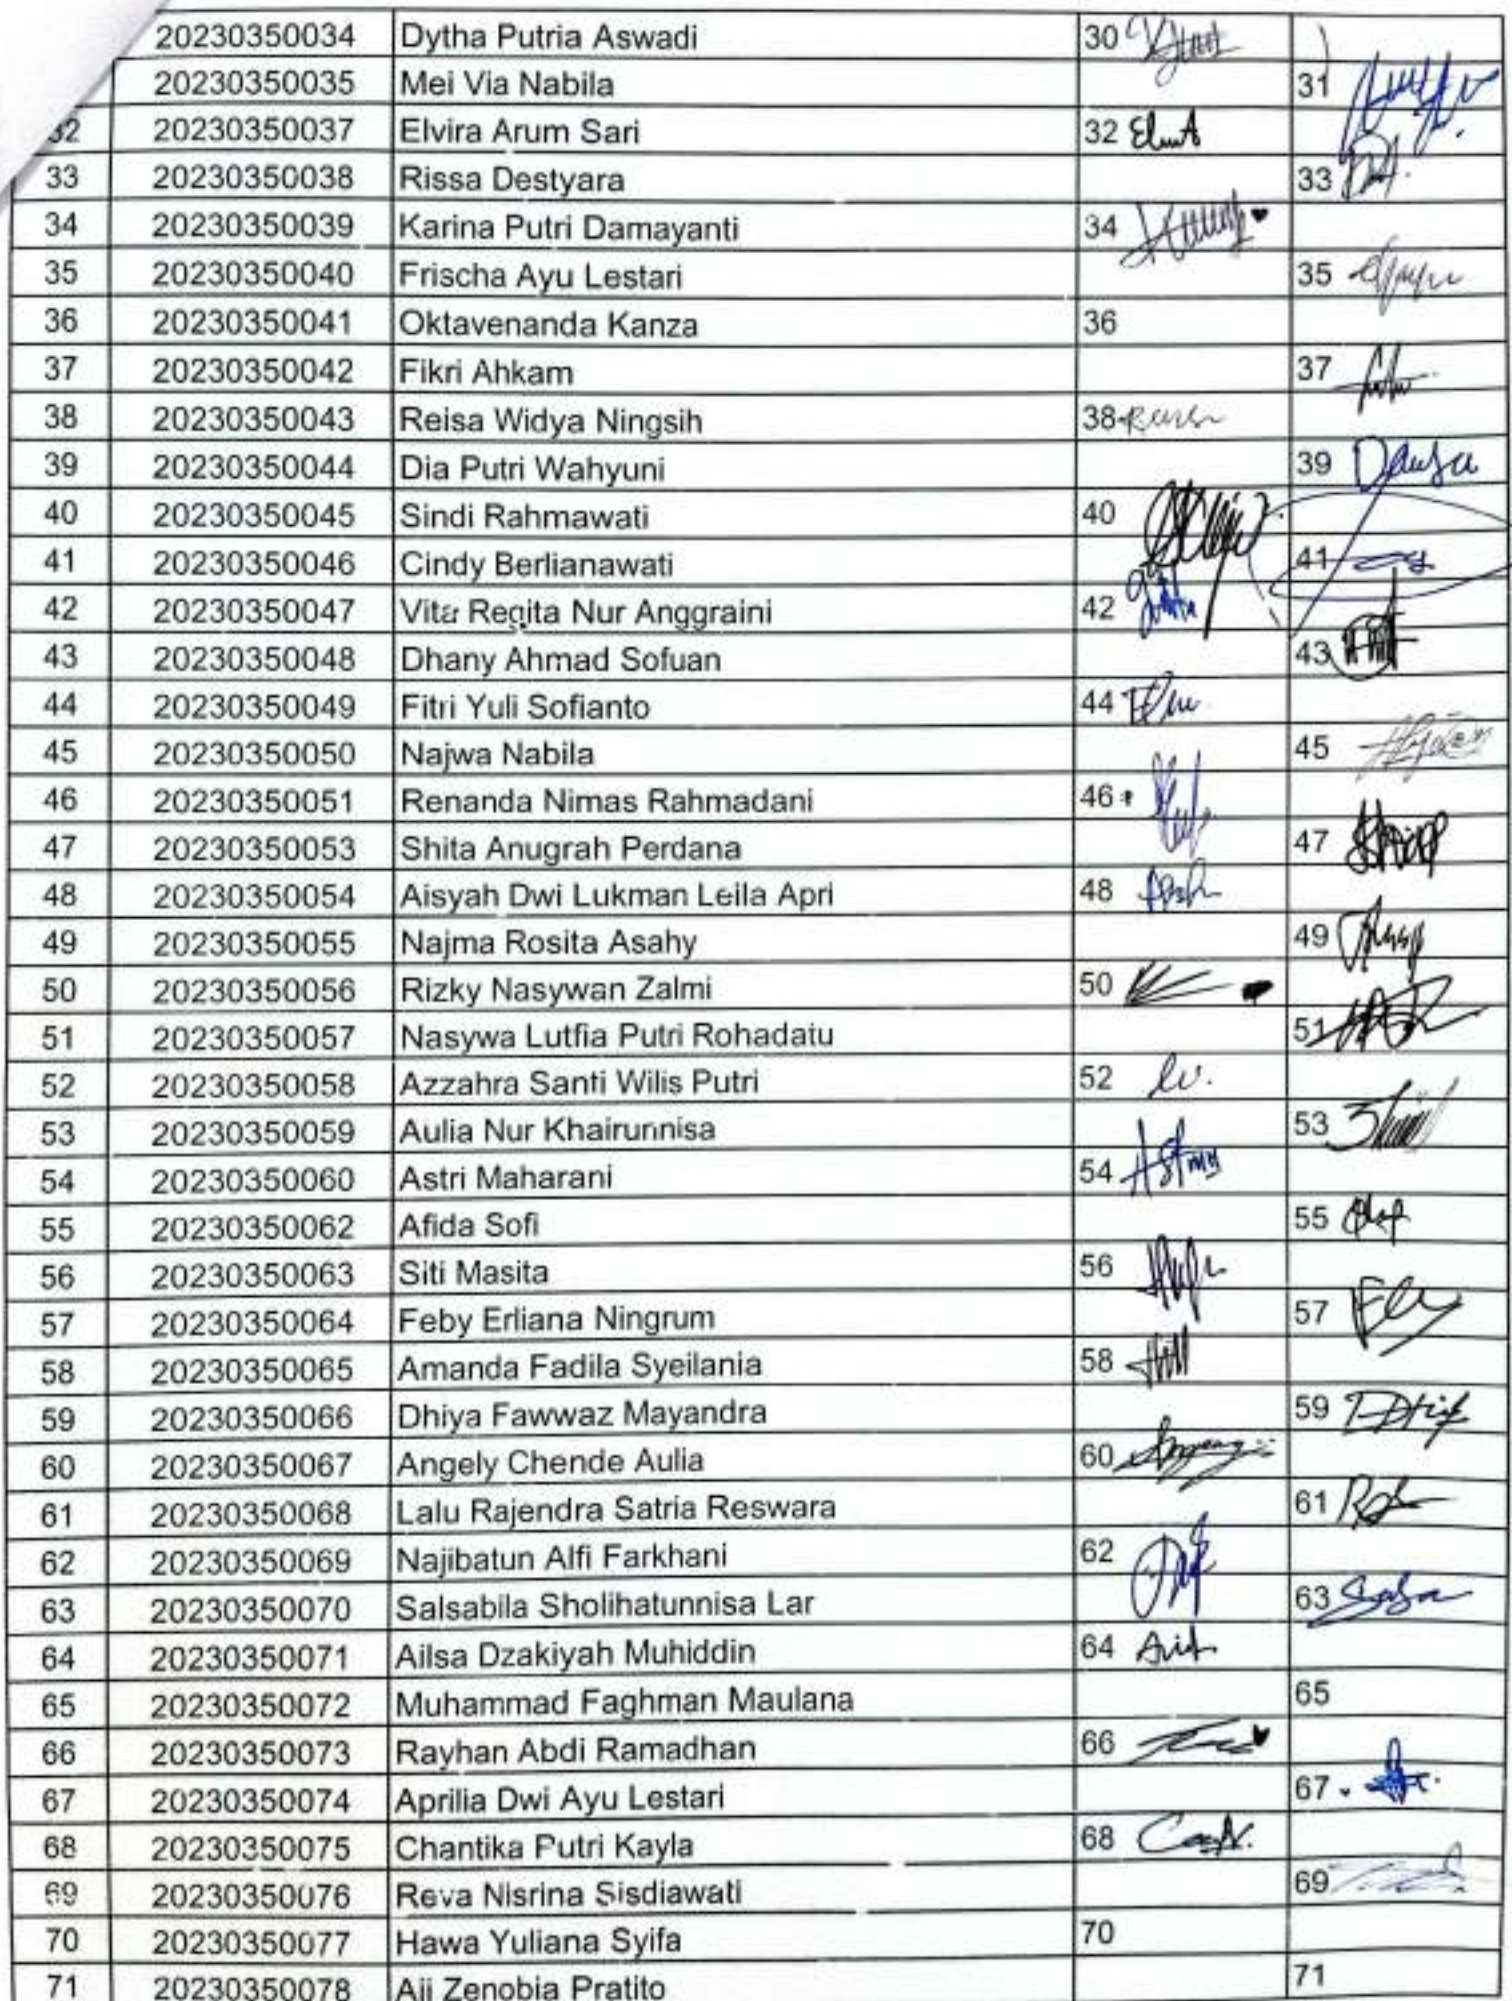 20230350034 Dytha Putria Aswadi 30
20230350035 Mei Via Nabila 31
32 20230350037 Elvira Arum Sari 32
33 20230350038 Rissa Destyara 33
34 20230350039 Karina Putri Damayanti 34
35 20230350040 Frischa Ayu Lestari 35
36 20230350041 Oktavenanda Kanza 36
37 20230350042 Fikri Ahkam 37
38 20230350043 Reisa Widya Ningsih 38
39 20230350044 Dia Putri Wahyuni 39
40 20230350045 Sindi Rahmawati 40
41 20230350046 Cindy Berlianawati 41
42 20230350047 Vita Regita Nur Anggraini 42
43 20230350048 Dhany Ahmad Sofuan 43
44 20230350049 Fitri Yuli Sofianto 44
45 20230350050 Najwa Nabila 45
46 20230350051 Renanda Nimas Rahmadani 46
47 20230350053 Shita Anugrah Perdana 47
48 20230350054 Aisyah Dwi Lukman Leila Apri 48
49 20230350055 Najma Rosita Asahy 49
50 20230350056 Rizky Nasywan Zalmi 50
51 20230350057 Nasywa Lutfia Putri Rohadatu 51
52 20230350058 Azzahra Santi Wilis Putri 52
53 20230350059 Aulia Nur Khairunnisa 53
54 20230350060 Astri Maharani 54
55 20230350062 Afida Sofi 55
56 20230350063 Siti Masita 56
57 20230350064 Feby Erliana Ningrum 57
58 20230350065 Amanda Fadila Syeilania 58
59 20230350066 Dhiya Fawwaz Mayandra 59
60 20230350067 Angely Chende Aulia 60
61 20230350068 Lalu Rajendra Satria Reswara 61
62 20230350069 Najibatun Alfi Farkhani 62
63 20230350070 Salsabila Sholihatunnisa Lar 63
64 20230350071 Ailsa Dzakiyah Muhiddin 64
65 20230350072 Muhammad Faghman Maulana 65
66 20230350073 Rayhan Abdi Ramadhan 66
67 20230350074 Aprilia Dwi Ayu Lestari 67
68 20230350075 Chantika Putri Kayla 68
69 20230350076 Reva Nisrina Sisdiawati 69
70 20230350077 Hawa Yuliana Syifa 70
71 20230350078 Aji Zenobia Pratito 71